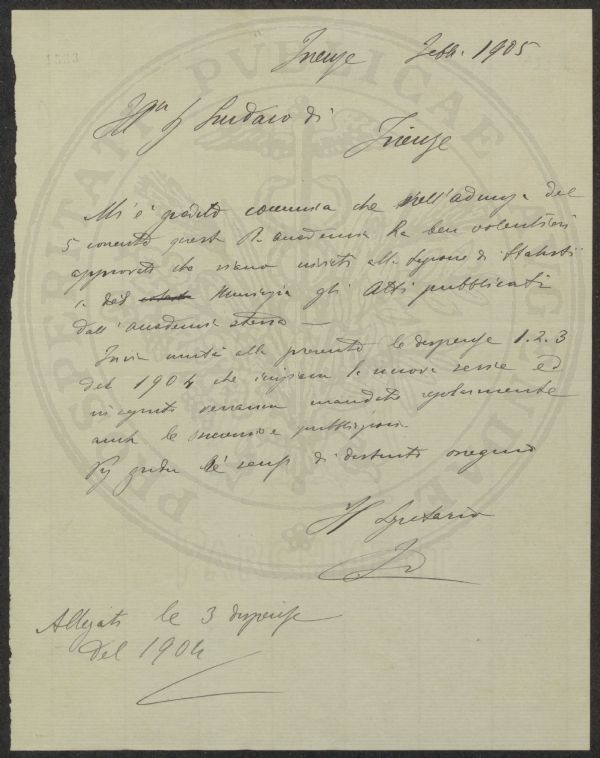 Firenze Febb. 1905
Ill.mo Sg Sindaco di
Firenze
Mi è gradito comunica che nell'adunza del
5 corrente questa R. Accademia ha ben volentieri
approvato che siano inviati alla Sezione di Statisti
Municipio gli Atti pubblicati
dall'Accademia stessa —
Invio unite alla presente le dispense 1. 2. 3
del 1904 che iniziano la nuova serie ed
in seguito verranno mandate regolarmente
anche le successive pubblicazioni.
di distinto ossequio
Il Segretario
Allegati le 3 dispense
del 1904
PROSPERITATI PUBLICAE